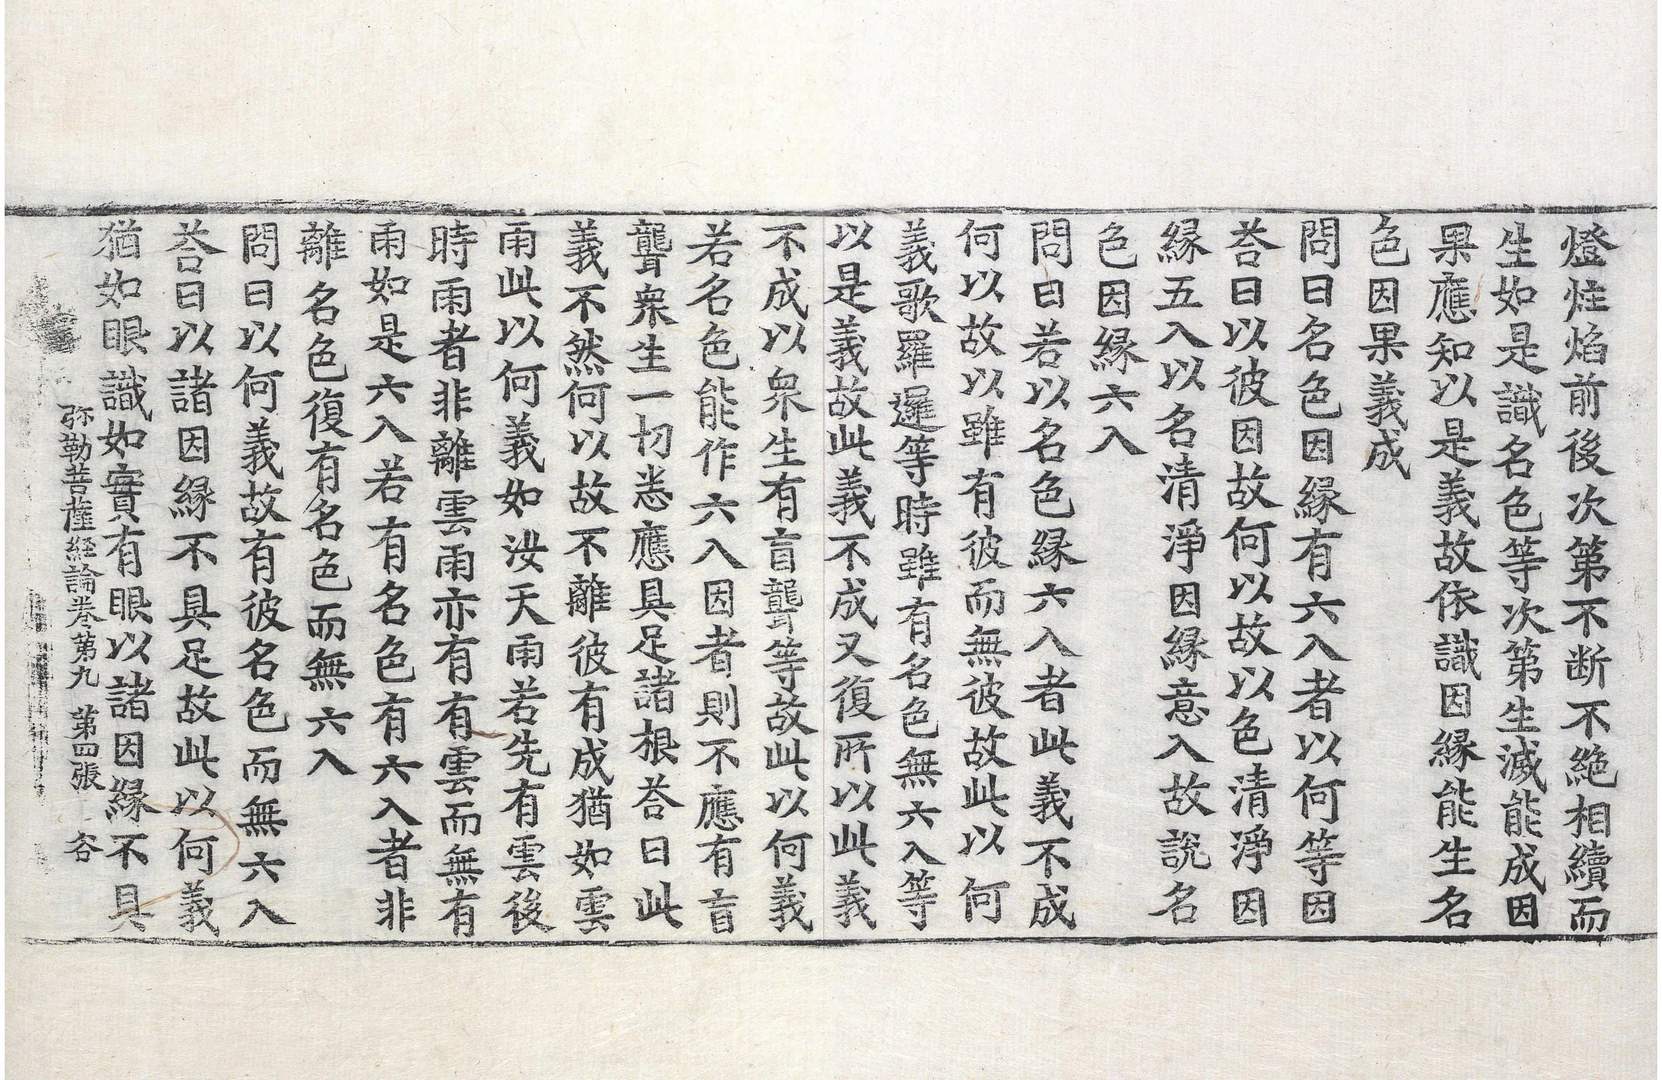 燈炷焰前後次第不断不絶相續而
生如是識名色等次第生滅能成因
果應知以是義故依識因縁能生名
色因果義成
問曰名色因縁有六入者以何等因
荅曰以彼因故何以故以色清淨因
縁五入以名清淨因縁意入故說名
色因縁六入
問曰若以名色縁六入者此義不成
何以故以雖有彼而無彼故此以何
義歌羅邏等時雖有名色無六入等
以是義故此義不成又復所以此義
不成以衆生有盲聾等故此以何義
若名色能作六入因者則不應有盲
聾衆生一切悉應具足諸根荅曰此
義不然何以故不離彼有成猶如雲
雨此以何義如汝天雨若先有雲後
時雨者非離雲雨亦有有雲而無有
雨如是六入若有名色有六入者非
離名色復有名色而無六入
問曰以何義故有彼名色而無六入
荅曰以諸因縁不具足故此以何義
猶如眼識如實有眼以諸因縁不具
弥勒菩薩経論卷第九　第四張　容